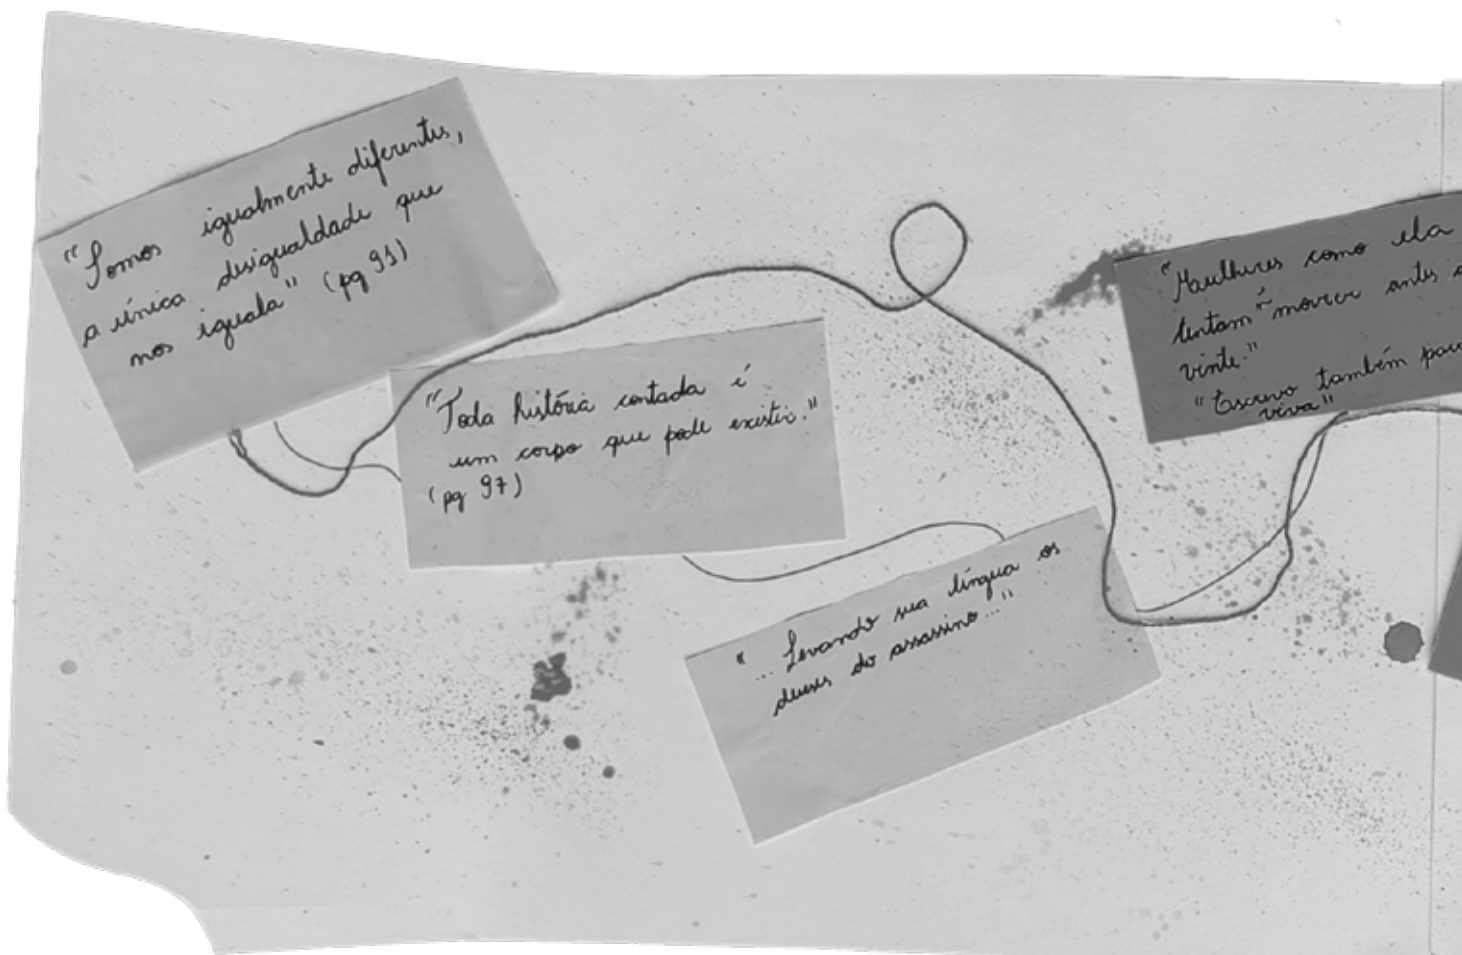 "Somos igualmente diferentes,
a única desigualdade que
nos iguala" (pg 91)
"Toda história contada é
um corpo que pode existir."
(pg 97)
"... Levando sua língua os
deuses do assassino..."
"Maulhures como ela
tentam ñ morrer antes
vinte."
"Escrevo também para
viva"